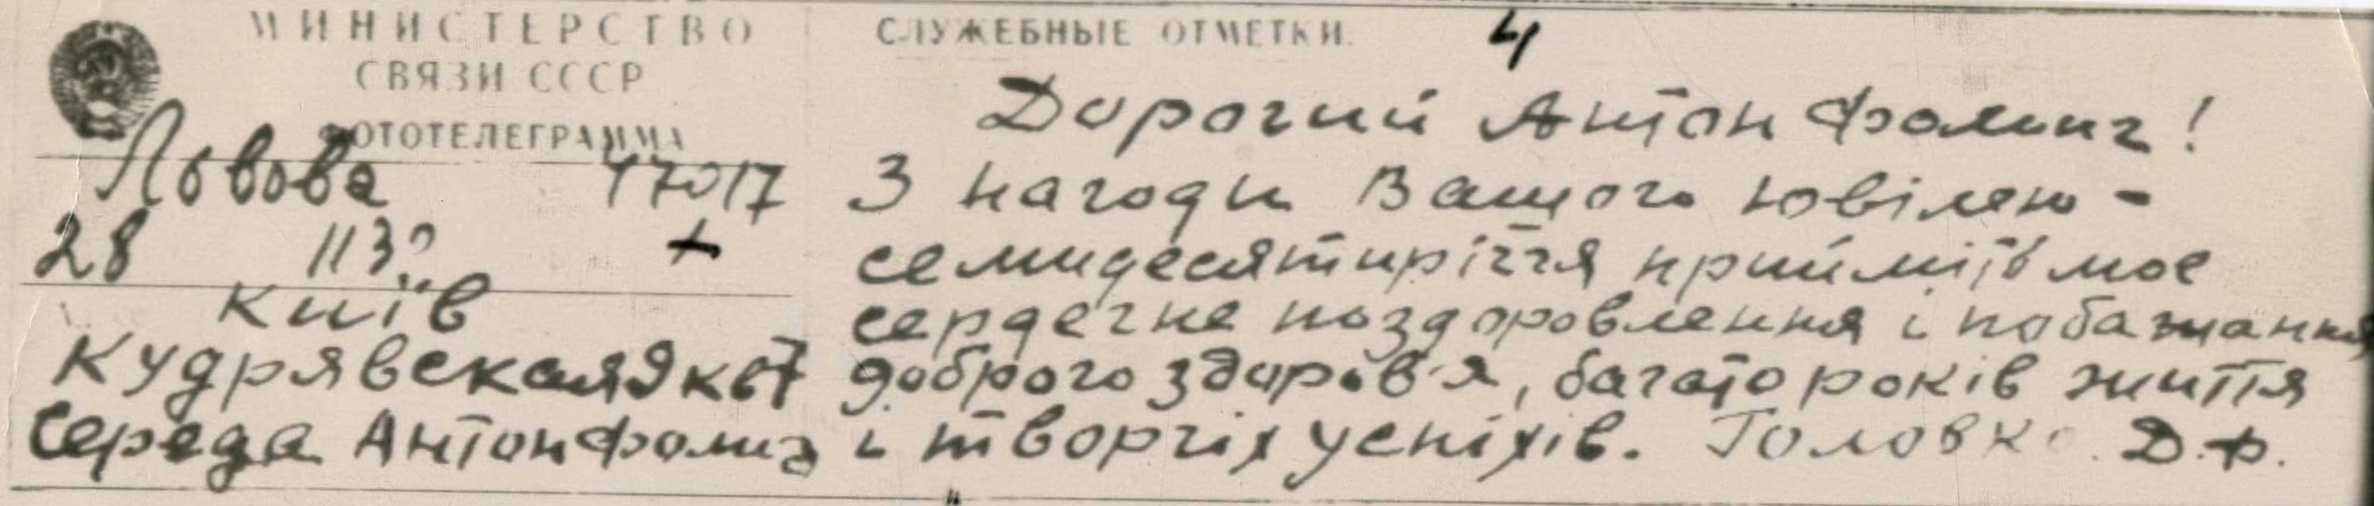 МИНИСТЕРСТВО
СВЯЗИ СССР
ФОТОТЕЛЕГРАММА
Львова 47017
28 1130 +
Київ
Кудрявская 9 кв 7
Середа Антон Фомич
СЛУЖЕБНЫЕ ОТМЕТКИ. 4
Дорогий Антон Фомич!
З нагоди Вашого ювілею -
семидесятиріччя прийміть моє
сердечне поздоровлення і побажання
доброго здоров'я, багато років життя
і творчіх успіхів. Головко Д.Ф.